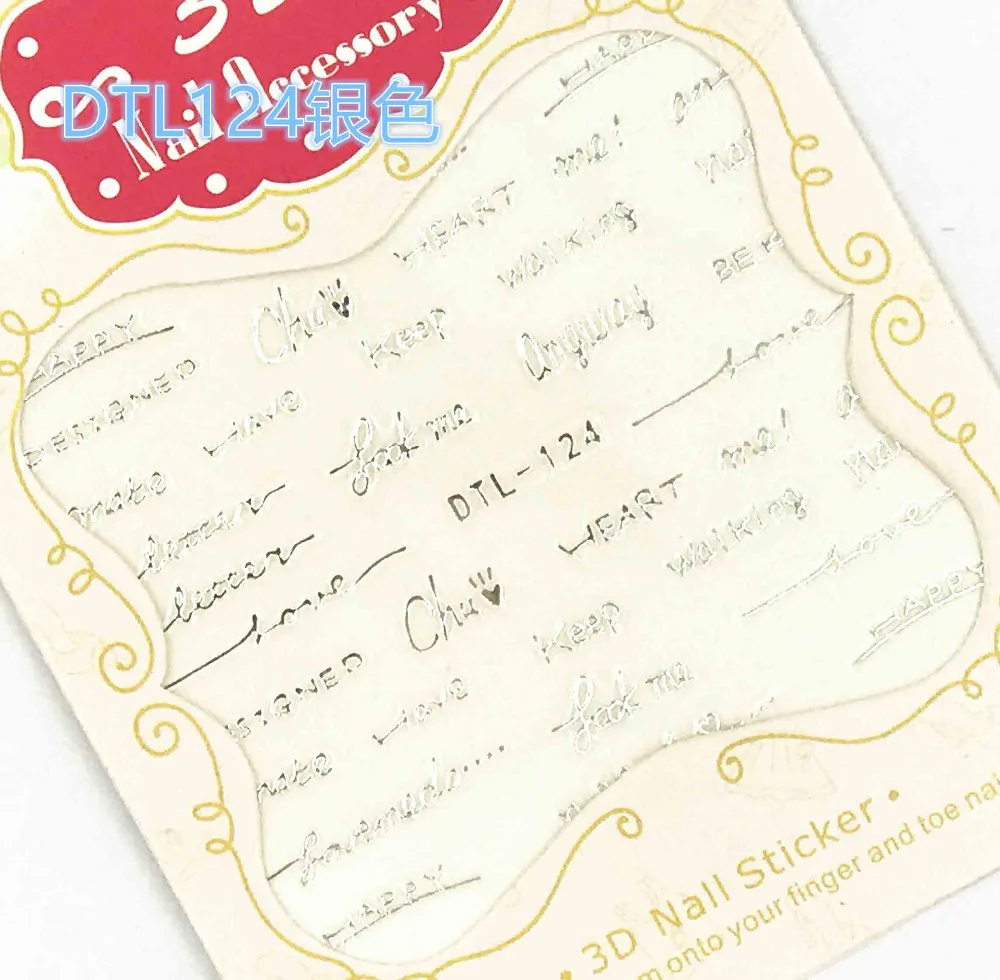 Nail Accessory
DTL124银色
HAPPY
me!
HEART
walking
BE
Chu
Keep
Anyway
HAPPY
DESIGNED
Have
Love
mate
fuck me
DTL-124
letter
HEART
me!
letter
walking
Love
Love
Chu
Keep
HAPPY
SIGNED
Have
fuck me
mate
HAPPY
• 3D Nail Sticker •
m onto your finger and toe nai